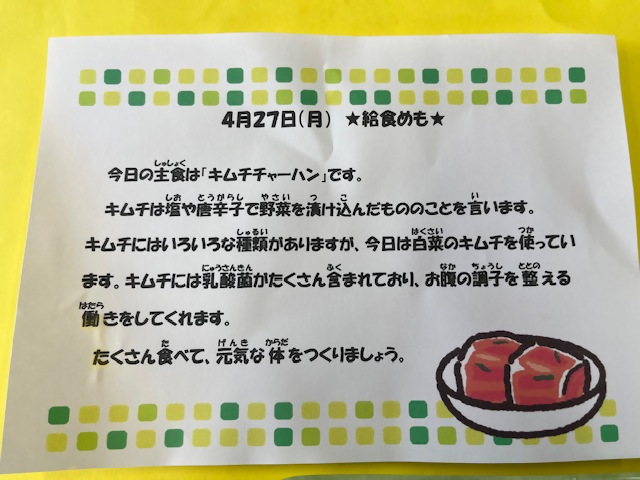 4月27日(月) ★給食めも★
今日の主食は「キムチチャーハン」です。
キムチは塩や唐辛子で野菜を漬け込んだもののことを言います。
キムチにはいろいろな種類がありますが、今日は白菜のキムチを使ってい
ます。キムチには乳酸菌がたくさん含まれており、お腹の調子を整える
働きをしてくれます。
たくさん食べて、元気な体をつくりましょう。